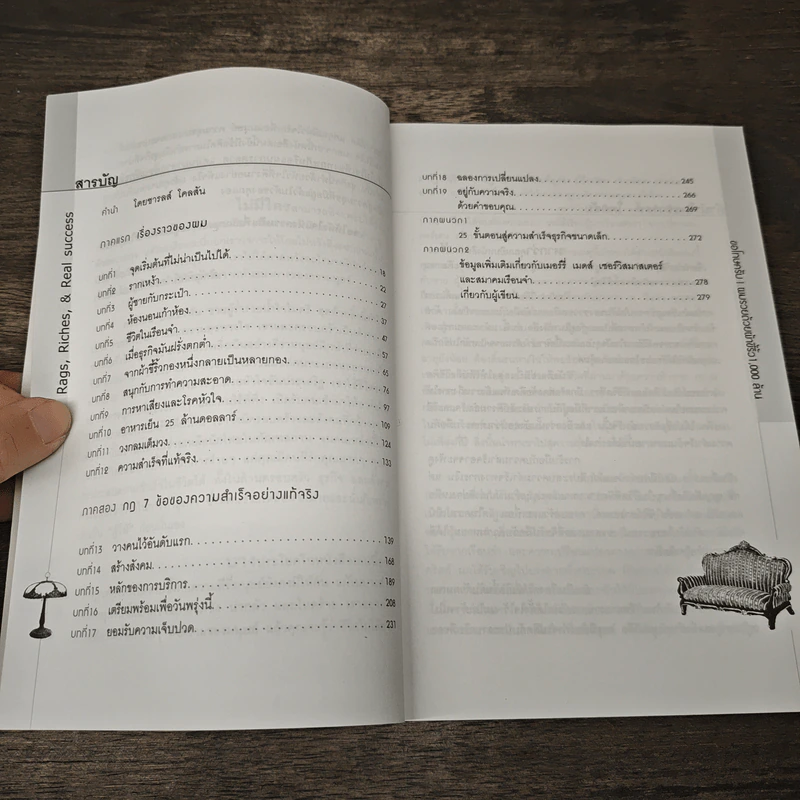 สารบัญ
คำนำ โดยชารลส์ โคลสัน
ภาคแรก เรื่องราวของผม
บทที่1 จุดเริ่มต้นที่ไม่น่าเป็นไปได้. 18
บทที่2 รากเหง้า. 22
บทที่3 ผู้ชายกับกระเป๋า. 27
บทที่4 ห้องนอนเก้าห้อง. 37
บทที่5 ชีวิตในเรือนจำ. 47
บทที่6 เมื่อธุรกิจมันฝรั่งตกต่ำ. 57
บทที่7 จากผ้าขี้ริ้วกองหนึ่งกลายเป็นหลายกอง. 65
บทที่8 สนุกกับการทำความสะอาด. 76
บทที่9 การหาเสียงและโรคหัวใจ. 97
บทที่10 อาหารเย็น 25 ล้านดอลลาร์ 109
บทที่11 วงกลมเต็มวง. 124
บทที่12 ความสำเร็จที่แท้จริง. 133
ภาคสอง กฎ 7 ข้อของความสำเร็จอย่างแท้จริง
บทที่13 วางคนไว้อันดับแรก. 139
บทที่14 สร้างสังคม. 168
บทที่15 หลักของการบริการ. 189
บทที่16 เตรียมพร้อมเพื่อวันพรุ่งนี้. 208
บทที่17 ยอมรับความเจ็บปวด. 231
Rags, Riches, & Real success
บทที่18 ฉลองการเปลี่ยนแปลง. 245
บทที่19 อยู่กับความจริง. 266
ด้วยคำขอบคุณ. 269
ภาคผนวก1
25 ขั้นตอนสู่ความสำเร็จธุรกิจขนาดเล็ก. 272
ภาคผนวก2
ข้อมูลเพิ่มเติมเกี่ยวกับเมอร์รี่ เมดส์ เซอร์วิสมาสเตอร์
และสมาคมเรือนจำ. 278
เกี่ยวกับผู้เขียน. 279
ผมรวยด้วยผ้าขี้ริ้ว 1,000 ล้าน